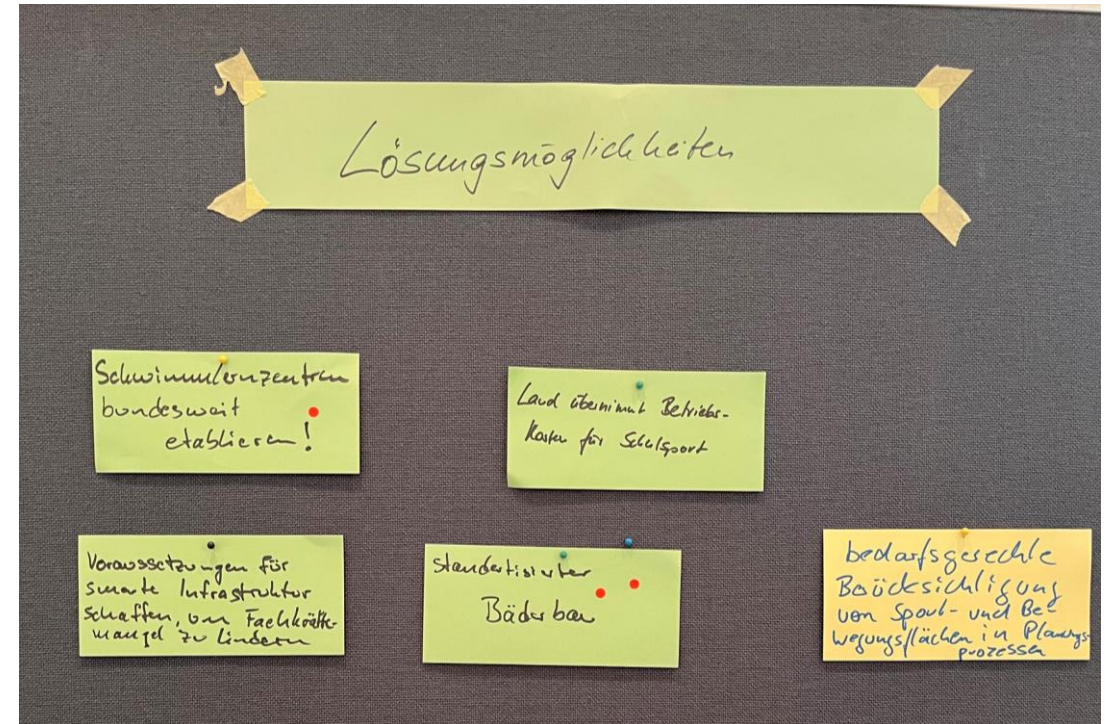 Lösungsmöglichkeiten
Schwimmlernzentren
bundesweit
etablieren!
Land übernimmt Betriebs-
kosten für Schulsport
Voraussetzungen für
smarte Infrastruktur
schaffen, um Fachkräfte-
mangel zu lindern
standartisierter
Bäderbau
bedarfsgerechte
Berücksichtigung
von Sport- und Be-
wegungsflächen in Planungs-
prozessen